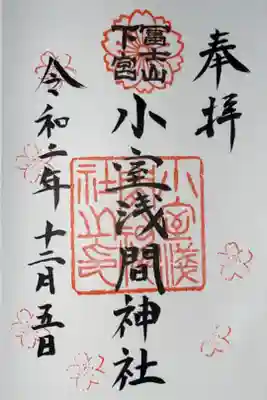 奉拝
冨士山
下宮
小室浅間神社
小室浅
間神
社之印
令和二年 十二月五日